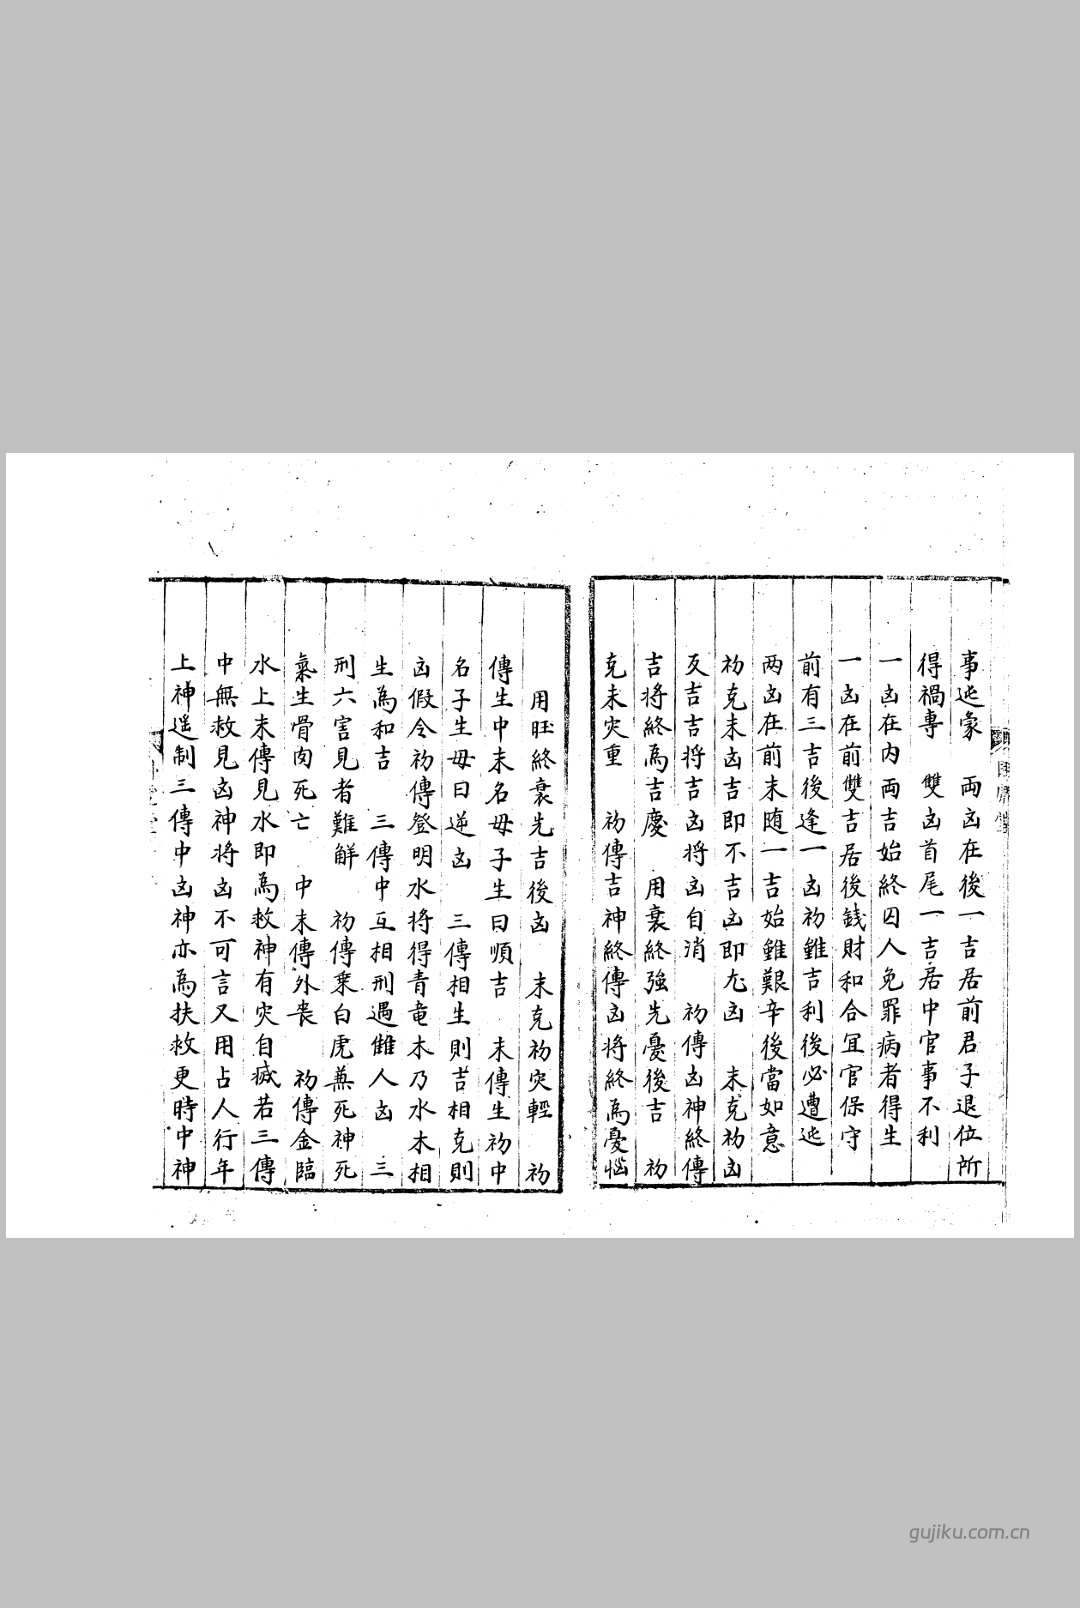 事迍䝉　両凶在後一吉居前君子退位所
得禍專　雙凶首尾一吉居中官事不利
一凶在内両吉始終囚人免罪病者得生
一凶在前雙吉居後錢財和合宜官保守
前有三吉後逢一凶初雖吉利後必遭迍
两凶在前末随一吉始雖艱辛後當如意
初克末凶吉即不吉凶即尢凶　末克初凶
反吉吉将吉凶将凶自消　初傳凶神終傳
吉将終爲吉慶　用衰終強先憂後吉　初
克末灾重　初傳吉神終傳凶将終爲憂惱
用旺終衰先吉後凶　末克初灾輕　初
傳生中末名母子生曰順吉　末傳生初中
名子生母曰逆凶　三傳相生則吉相克則
凶假令初傳登明水将得青竜木乃水木相
生爲和吉　三傳中互相刑遇雠人凶　三
刑六害見者難觧　初傳乗白虎蒹死神死
氣生骨肉死亡　中末傳外喪　初傳金臨
水上末傳見水即爲救神有灾自㓕若三傳
中無救見凶神将凶不可言又用占人行年
上神遥制三傳中凶神亦爲扶救更時中神
gujiku.com.cn